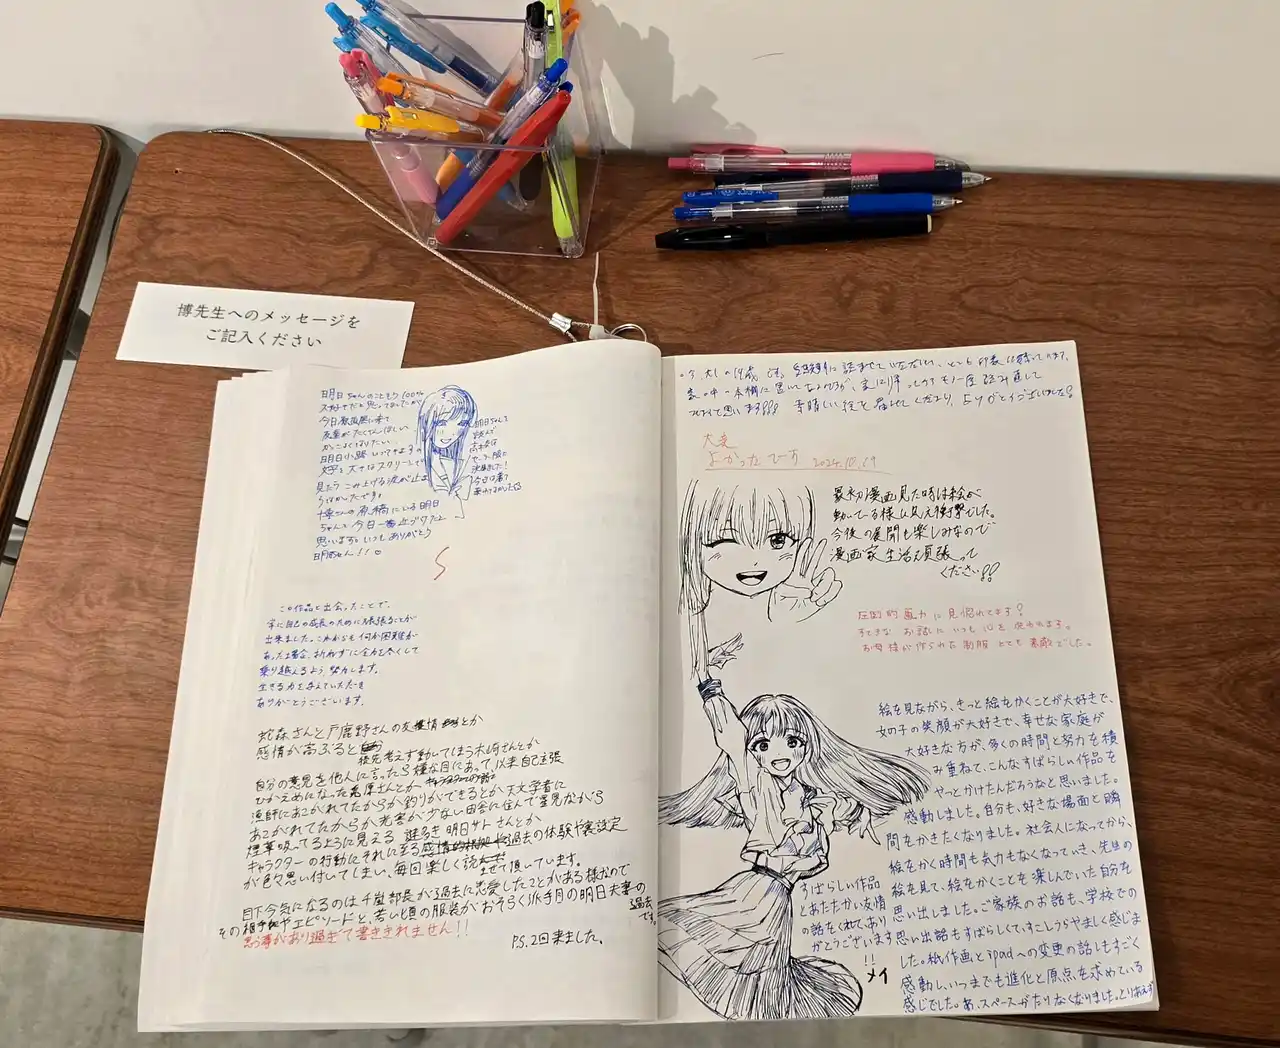 博先生へのメッセージを
ご記入ください
明日ちゃんのこともう100%
今日原画展に来て
友達がたくさんほしい
かっこよくなりたい
明日小路
大きなスクリーンで
見たら こみ上げる涙が止ま
らなかったです。
博さんの原稿にいる明日
ちゃんも今日一番近づけたと
思います。いつもありがとう
明日ちゃん!!
明日ちゃんを
読んで
セーラー服に
今日は着て
この作品と出会ったことで、
自己の成長のために頑張ることが
出来ました。これからも何か困難が
あった場合、折れずに全力を尽くして
乗り越えるよう、努力します。
生きる力を与えていただき
ありがとうございます。
蛇森さんと戸鹿野さんの友情とか
感情が高ぶると後先考えず動いてしまう大崎さんとか
自分の意見を他人に言ったら嫌な目にあって、以来自己主張
ひかえめになった鬼原さんとか
漁師にあこがれてたからか釣りができるとか天文学者に
あこがれてたからか光害が少ない田舎に住んで星見ながら
煙草吸ってるように見える 謎多き 明日サトさんとか
キャラクターの行動にそれに至る過去の体験や裏設定
が色々思い付いてしまい、毎回楽しく読ませて頂いています。
目下今気になるのは千嵐部長が過去に恋愛したことがある様なので
その相手やエピソードと、若い頃の服装がおそらく派手目の明日夫妻の過去
です。
思う事があり過ぎて書ききれません!!
P.S. 2回来ました。
素晴しい絵を見せてくださり、ありがとうございました!
大変
よかったでーす 2024.10.29
最初漫画見た時は絵が
動いてる様に見え衝撃でした。
今後の展開も楽しみなので
漫画家生活頑張って
ください!!
圧倒的画力に見惚れてます!
すてきなお話にいつも心を
お母様が作られた制服とても素敵でした。
絵を見ながら、きっと絵をかくことが大好きで、
女の子の笑顔が大好きで、幸せな家庭が
大好きな方が、多くの時間と努力を積
み重ねて、こんなすばらしい作品を
やっとかけたんだろうなと思いました。
感動しました。自分も、好きな場面と瞬
間をかきたくなりました。社会人になってから、
絵をかく時間も気力もなくなっていき、先生の
絵を見て、絵をかくことを楽しんでいた自分を
思い出しました。ご家族のお話も、学校での
思い出話もすばらしくて、すこしうらやましく感じま
した。紙作画とipadへの変更の話しもすごく
感動し、いつまでも進化と原点を求めている
感じでした。あ、スペースがたりなくなりました。とりあえず
すばらしい作品
とあたたかい友情
の話をくれて、あり
がとうございます
!!
メイ